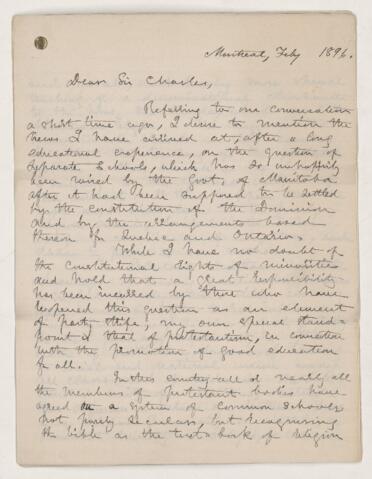 Montreal, Feby 1896.
Dear Sir Charles,
Referring to our conversation
a short time ago, I desire to mention the
views I have arrived at, after a long
educational experience, on the question of
separate schools, which has so unhappily
been raised by the Govt. of Manitoba
after it had been supposed to be settled
by the constitution of the Dominion
and by the arrangements based
thereon in Quebec and Ontario.
While I have no doubt of
the constitutional rights of minorities
and hold that a great responsibility
has been incurred by those who have
reopened this question as an element
of party strife, my own special stand-
point is that of protestantism, in connection
with the promotion of good education
for all.
In this country all or nearly all
the members of protestant bodies have
agreed on a system of common schools
not purely secular, but recognising
the bible as the text book of religion